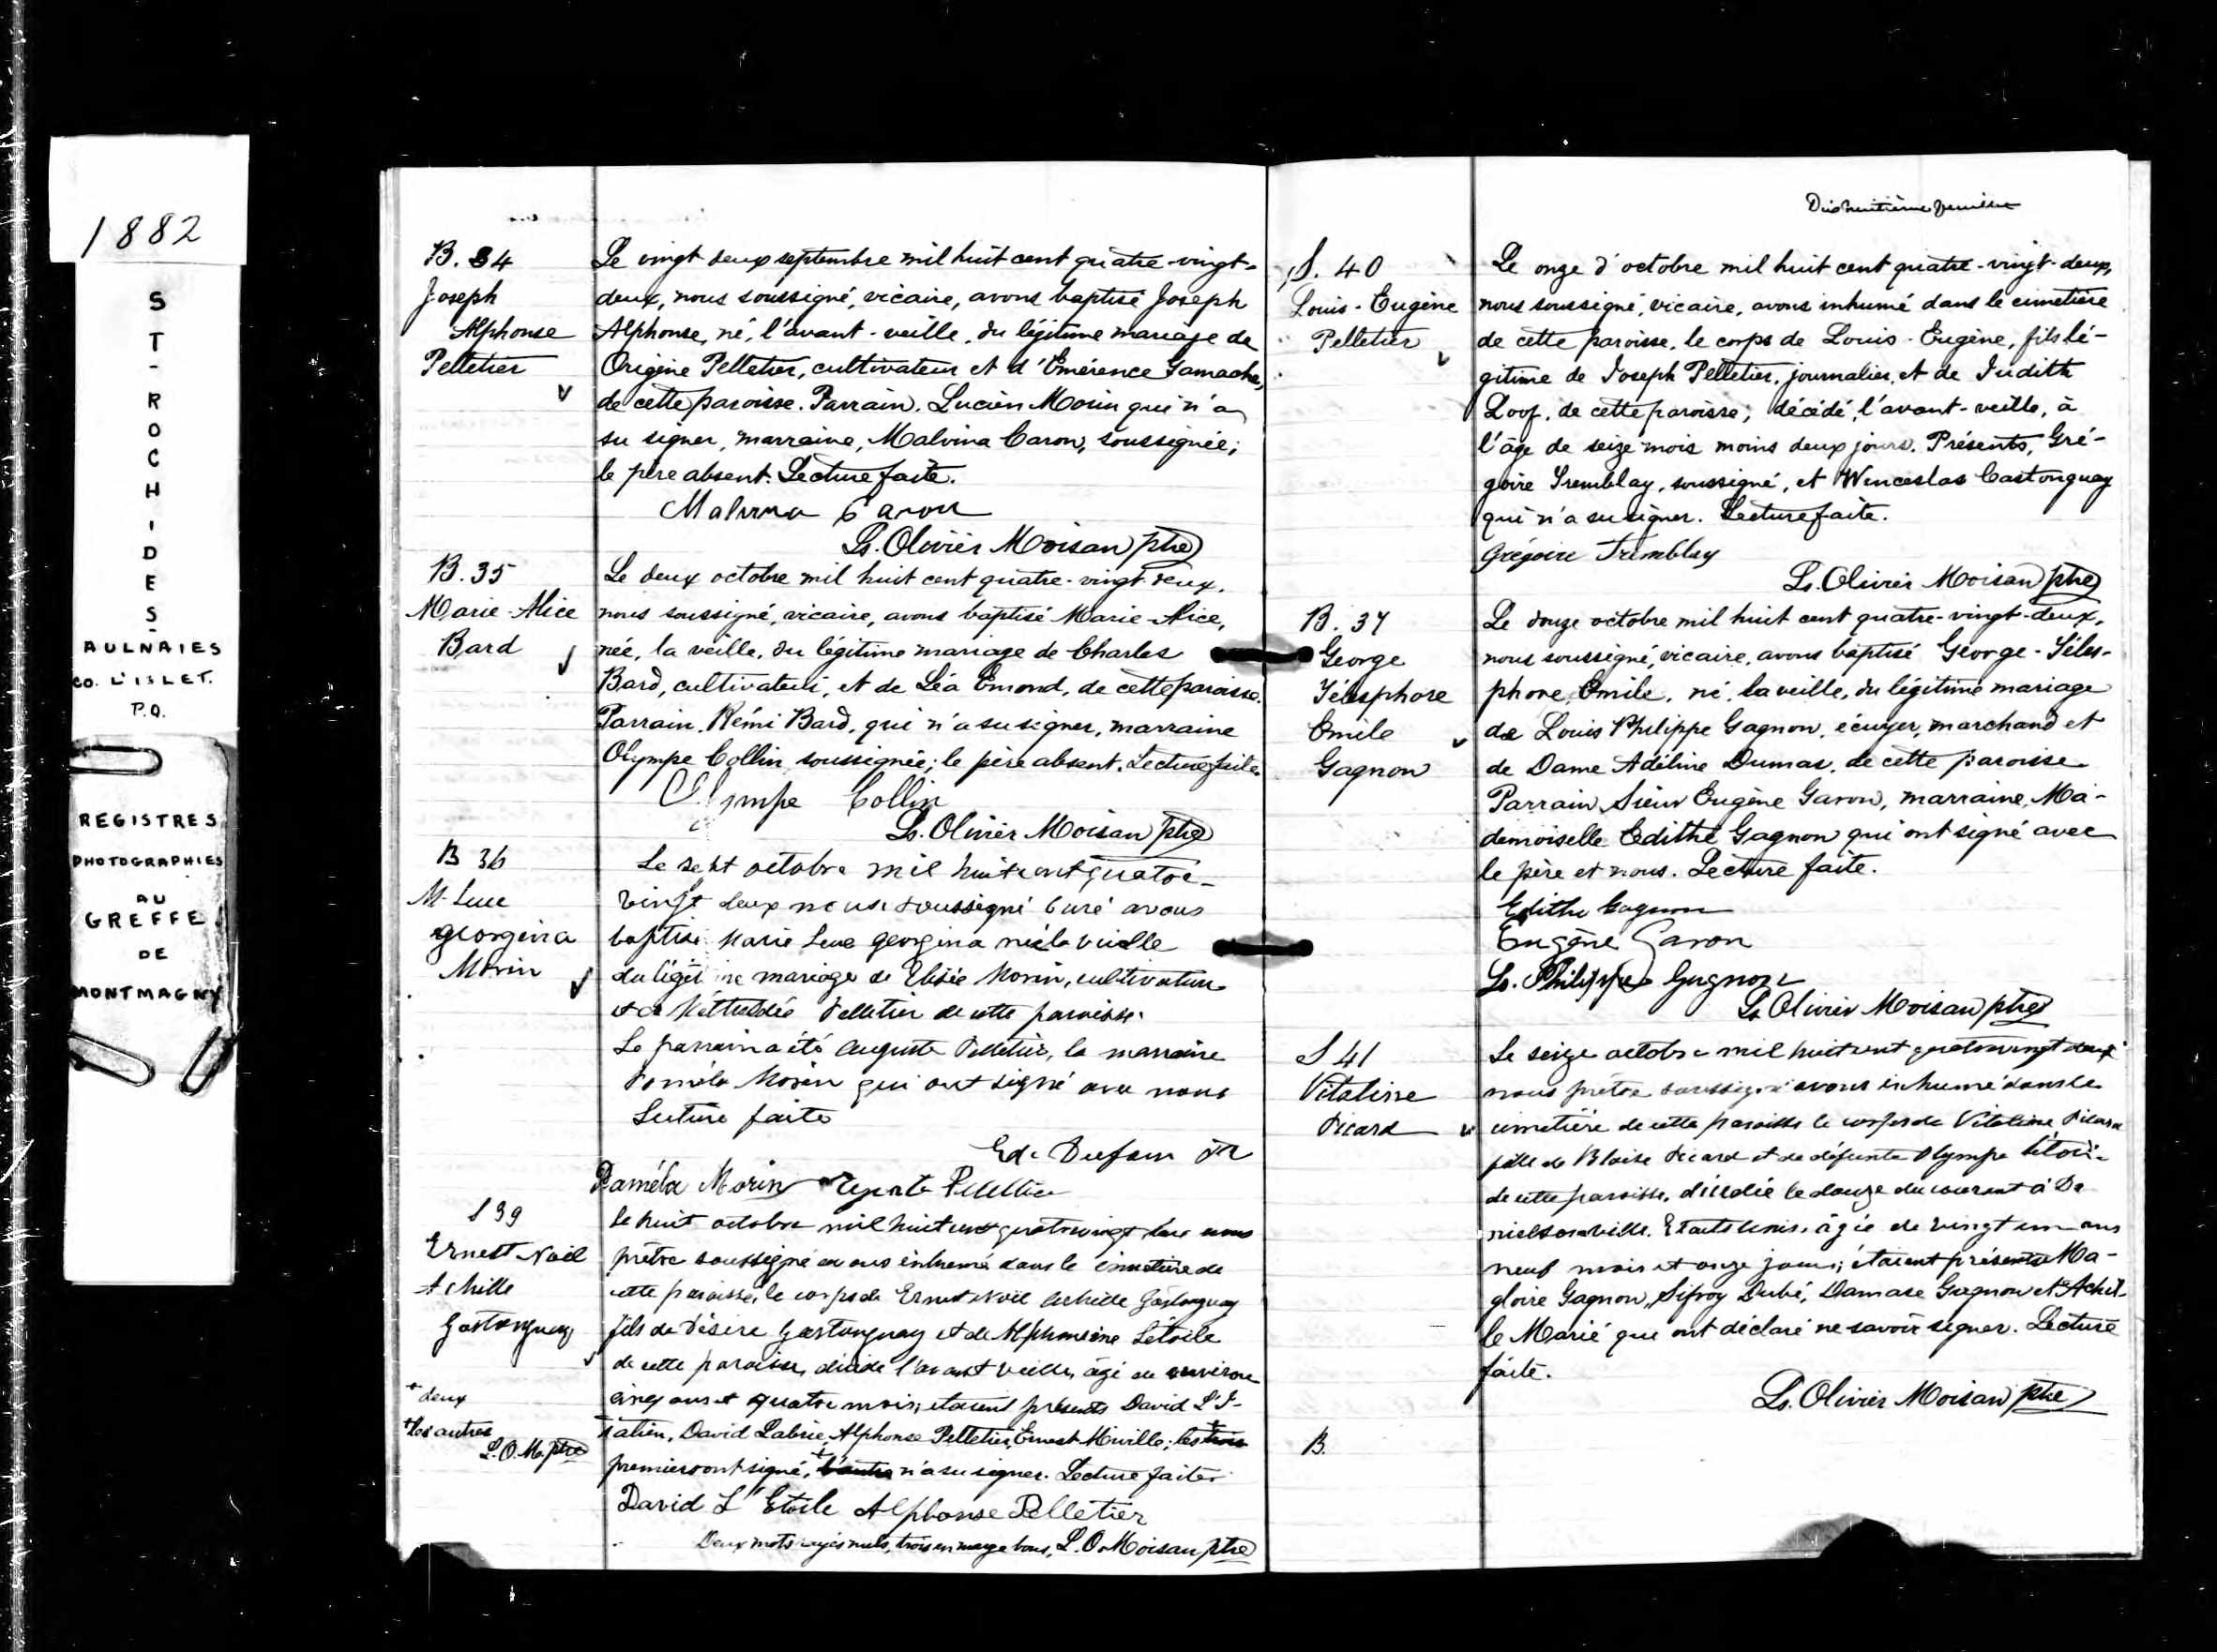 1882
ST-ROCH-DES-
AULNAIES
CO. L'ISLET.
P.Q.
REGISTRES
PHOTOGRAPHIES
AU
GREFFE
DE
MONTMAGNY
B. 34
Joseph
Alphonse
Pelletier
Le vingt deux septembre mil huit cent quatre-vingt-
deux, nous soussigné, vicaire, avons baptisé Joseph
Alphonse, né, l'avant-veille, du légitime mariage de
Origène Pelletier, cultivateur et d'Emérence Gamache,
de cette paroisse. Parrain, Lucien Morin qui n'a
su signer, marraine, Malvina Caron, soussignée;
le père absent. Lecture faite.
Malvina Caron
Ls. Olivier Moisan ptre
B. 35
Marie-Alice
Bard
Le deux octobre mil huit cent quatre-vingt-deux,
nous soussigné, vicaire, avons baptisé Marie-Alice,
née, la veille, du légitime mariage de Charles
Bard, cultivateur, et de Léa Emond, de cette paroisse.
Parrain, Rémi Bard, qui n'a su signer, marraine
Olympe Collin soussignée; le père absent. Lecture faite.
Olympe Collin
Ls. Olivier Moisan ptre
B 36
M-Luce
georgina
Morin
Le sept octobre mil huit cent quatre-
vingt deux nous soussigné Curé avons
baptisé Marie Luce georgina née la veille
du légitime mariage de Elisée Morin, cultivateur
et de Pelletier de cette paroisse.
Le parrain a été Auguste Pelletier, la marraine
Paméla Morin qui ont signé avec nous
Lecture faite
Ed. Dufour
Paméla Morin Pelletier
S 39
Ernest Noël
Achille
Gastonguay
Le huit octobre mil huit cent quatrevingt deux nous
prêtre soussigné avons inhumé dans le cimetière de
cette paroisse, le corps de Ernest Noël Achille Gastonguay
fils de Désiré Gastonguay et de Alphonsine Létoile
de cette paroisse, décédé l'avant veille, âgé de environ
cinq ans et quatre mois; étaient présents David
David Labrie, Alphonse Pelletier, Ernest Miville; les trois
premiers ont signé, + l'autre n'a su signer. Lecture faite.
+ deux
+ les autres
L. O. M. ptre
David L'Etoile Alphonse Pelletier
Deux mots rayés nuls, trois en marge bons, L. O. Moisan ptre
Dixhuitième feuillet
S. 40
Louis-Eugène
Pelletier
Le onze d'octobre mil huit cent quatre-vingt-deux,
nous soussigné, vicaire, avons inhumé dans le cimetière
de cette paroisse, le corps de Louis-Eugène, fils lé-
gitime de Joseph Pelletier, journalier, et de Judith
Loof, de cette paroisse, décédé, l'avant-veille, à
l'âge de seize mois moins deux jours. Présents, Gré-
goire Tremblay, soussigné, et Wenceslas Castonguay
qui n'a su signer. Lecture faite.
Grégoire Tremblay
Ls. Olivier Moisan ptre
B. 37
George
Télesphore
Emile
Gagnon
Le douze octobre mil huit cent quatre-vingt-deux,
nous soussigné, vicaire, avons baptisé George-Téles-
phore Emile, né, la veille, du légitime mariage
de Louis Philippe Gagnon, écuyer, marchand et
de Dame Adéline Dumas, de cette paroisse.
Parrain, Sieur Eugène Garon, marraine, Ma-
demoiselle Edithe Gagnon qui ont signé avec
le père et nous. Lecture faite.
Edithe Gagnon
Eugène Garon
Ls. Philippe Gagnon
Ls Olivier Moisan ptre
S 41
Vitaline
Picard
Le seize octobre mil huit cent quatrevingt deux
nous prêtre soussigné avons inhumé dans le
cimetière de cette paroisse le corps de Vitaline Picard
fille de Blaise Picard et de défunte Olympe
de cette paroisse, décédée le douze du courant à Da
nielsonville, Etats Unis, âgée de vingt un ans
neuf mois et onze jours; étaient présents Ma-
gloire Gagnon, Sifroy Dubé, Damase Gagnon et Achil-
le Marié qui ont déclaré ne savoir signer. Lecture
faite.
Ls. Olivier Moisan ptre
B.